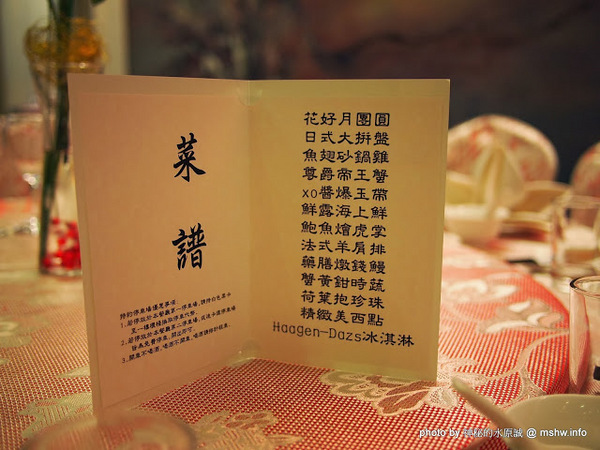 菜譜
特約停車場優惠事項:
花好月團圓
日式大拼盤
魚翅砂鍋雞
尊爵帝王蟹
xo醬爆玉帶
鮮露海上鮮
鮑魚燴虎掌
法式羊肩排
藥膳燉錢鰻
蟹黃鉗時蔬
荷葉抱珍珠
精緻美西點
Haagen-Dazs冰淇淋
photo by 秘秘的水原誠 @ mshw.info